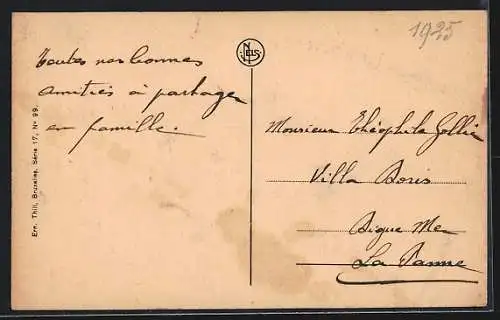 1925
NELS
Toutes nos bonnes
amitiés à partager
en famille.
Monsieur Théophile Jollie
Villa Doris
Digue Me
La Panne
Ern. Thill, Bruxelles, Série 17, No 99.